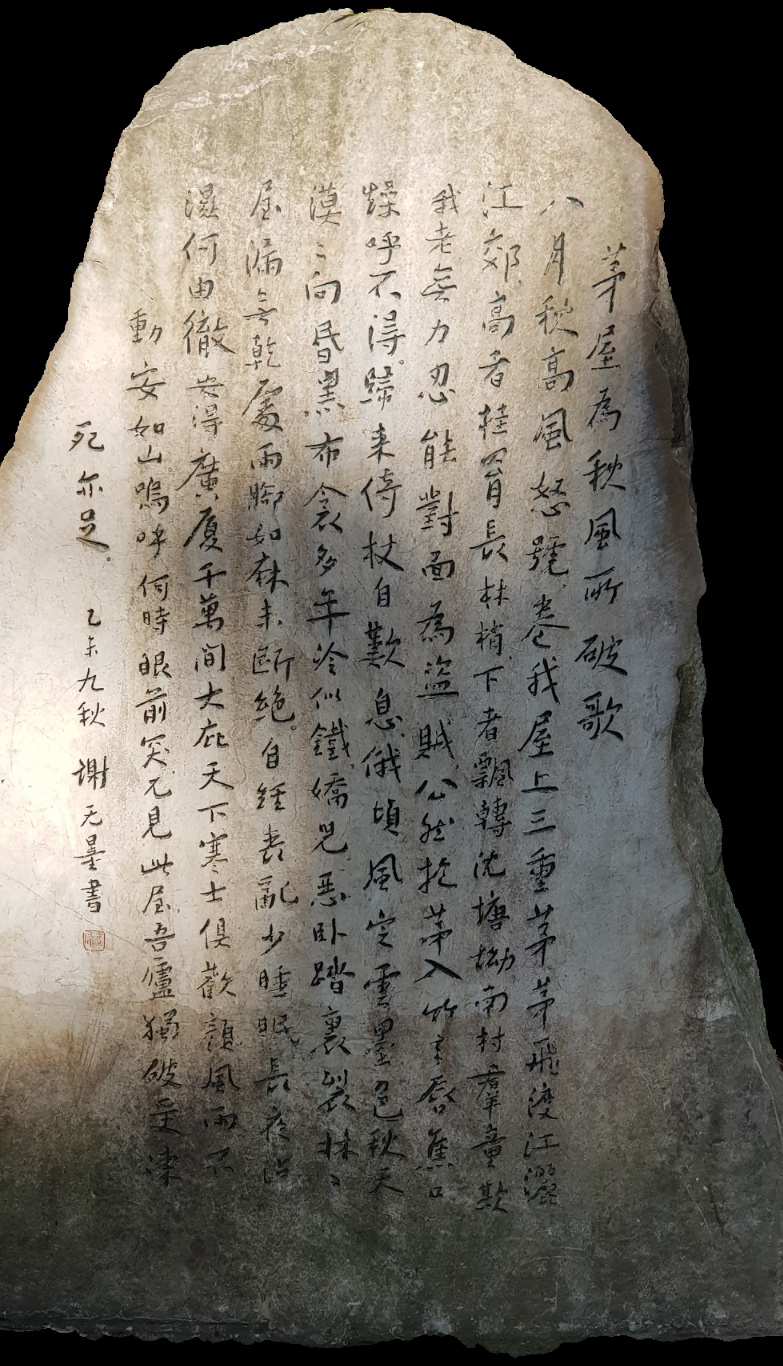 茅屋為秋風所破歌
八月秋高風怒號卷我屋上三重茅茅飛渡江灑
江郊高者挂罥長林梢下者飄轉沈塘坳南村羣童欺
我老無力忍能對面為盜賊公然抱茅入竹去唇焦口
燥呼不得歸来倚杖自歎息俄頃風定雲墨色秋天
漠〻向昏黑布衾多年冷似鐵嬌兒惡卧踏裏裂牀〻
屋漏無乾處雨腳如麻未斷絕自經喪亂少睡眠長夜沾
濕何由徹安得廣厦千萬間大庇天下寒士俱歡顔風雨不
動安如山嗚呼何時眼前突兀見此屋吾廬獨破受凍
死亦足 乙未九秋 謝无量書